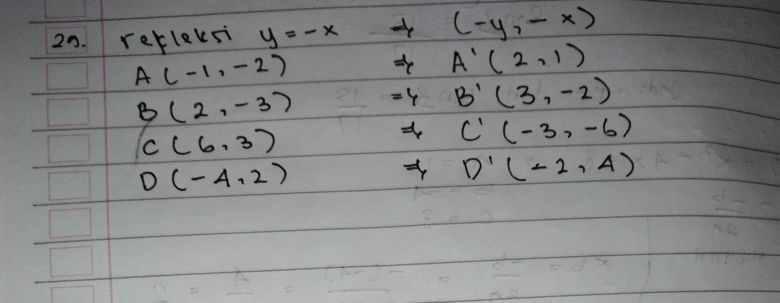 29. refleksi y = -x ⇒ (-y, -x)
A (-1, -2) ⇒ A' (2, 1)
B (2, -3) ⇒ B' (3, -2)
C (6, 3) ⇒ C' (-3, -6)
D (-4, 2) ⇒ D' (-2, 4)